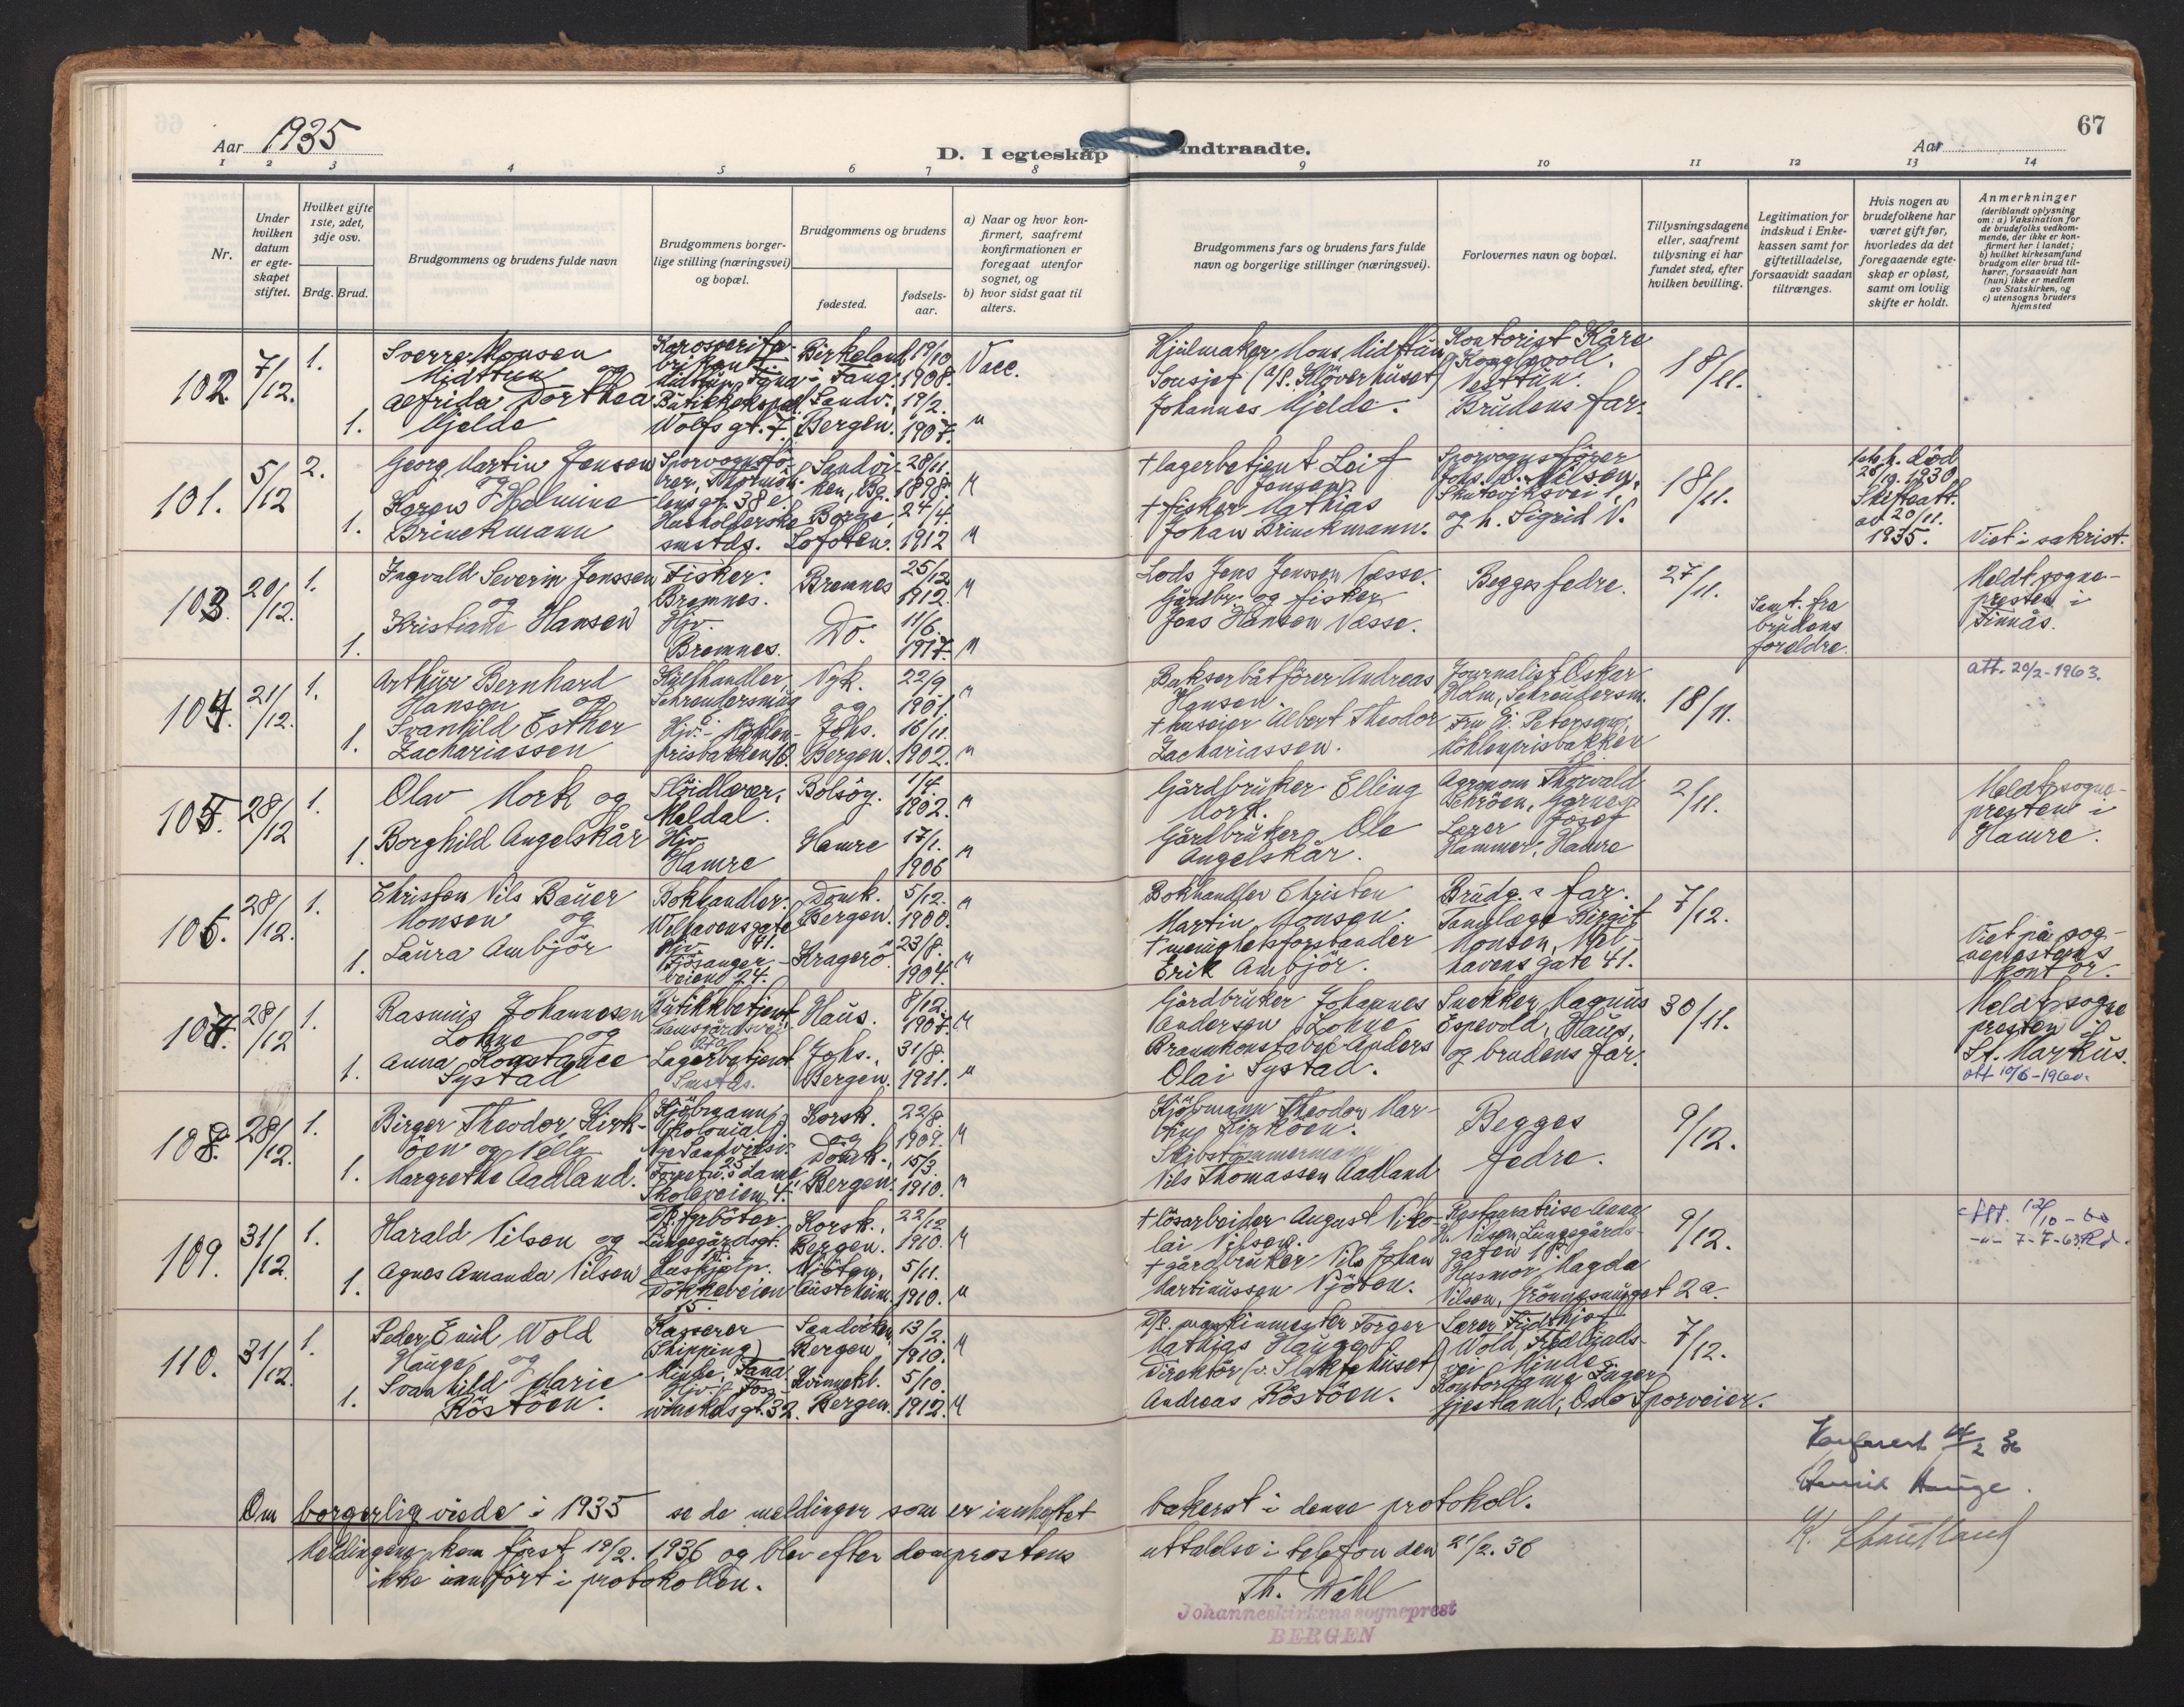 67
Aar 1935
D. I egteskap indtraadte.
Aar
1 2 3 4 5 6 7 8 9 10 11 12 13 14
Nr.
Under hvilken datum er egteskapet stiftet.
Hvilket gifte 1ste, 2det, 3dje osv.
Brdg. Brud.
Brudgommens og brudens fulde navn
Brudgommens borgerlige stilling (næringsvei) og bopæl.
Brudgommens og brudens
fødested.
fødselsaar.
a) Naar og hvor konfirmert, saafremt konfirmationen er foregaat utenfor sognet, og
b) hvor sidst gaat til alters.
Brudgommens fars og brudens fars fulde navn og borgerlige stillinger (næringsvei).
Forlovernes navn og bopæl.
Tillysningsdagene eller, saafremt tillysning ei har fundet sted, efter hvilken bevilling.
Legitimation for indskud i Enkekassen samt for giftetilladelse, forsaavidt saadan tiltrænges.
Hvis nogen av brudefolkene har været gift før, hvorledes da det foregaaende egteskap er opløst, samt om lovlig skifte er holdt.
Anmerkninger
(deriblandt oplysning om: a) Vaksination for de brudefolks vedkommende, der ikke er konfirmert her i landet; b) hvilket kirkesamfund brudgom eller brud tilhører, forsaavidt han (hun) ikke er medlem av Statskirken, og c) utensogns bruders hjemsted
102. 7/12. 1. Sverre Monsen Midttun og
Birkeland i Fana. 19/10 1908. Vacc.
Hjulmaker Mons Midttun
Kontorist Kåre
Nesttun.
18/11.
1. Alfrida Dorthea Gjelde
Wolfs gt. 7. Sandv. Bergen. 19/2. 1907. "
Johannes Gjelde.
Brudens far.
101. 5/12 2. Georg Martin Jensen og
Sporvognsfører, Thormøhlens gt. 38 e.
Sandviken, Bg. 28/11. 1898. "
† lagerbetjent Leif Jensen
Sporvognsfører Johs. Nilsen, Skuteviksvei 1,
og h. Sigrid N.
18/11.
død 1930
Skifteatt. av 20/11. 1935.
Viet i sakrist.
1. Karen Helmine Brinckmann
Husholderske smstds.
Borge, Lofoten. 24/4. 1912 "
† fisker Mathias Johan Brinckmann.
103. 20/12. 1. Ingvald Severin Jenssen og
Fisker. Bremnes. Bremnes 25/12 1912. "
Lods Jens Jenssen Væsse.
Begges fedre.
27/11.
Samt. fra brudens foreldre.
Meldt sogne-
presten i
Finnås.
1. Kristiane Hansen
Hjv. Bremnes. Do. 11/6. 1917. "
Gårdbr. og fisker Jens Hansen Væsse.
104. 21/12. 1. Arthur Bernhard Hansen og
Kullhandler, Nyk. 22/9 1901. "
Buksérbåtfører Andreas Hansen.
Journalist Oskar Holm,
18/11.
att. 20/2-1963.
1. Svanhild Esther Zachariassen
Hjv. Møhlenprisbakken 10. Johs. Bergen. 16/11. 1902. "
† huseier Albert Theodor Zachariassen.
Møhlenprisbakken
105. 28/12 1. Olav Mork og
Sløidlærer, Meldal. Bolsøy. 1/4. 1902. "
Gårdbruker Elling Mork.
Agronom Thorvald
2/11.
Meldt sogne-
presten i
Hamre.
1. Borghild Angelskår
Hjv. Hamre Hamre 17/1. 1906 "
Gårdbruker Ole Angelskår.
Lærer Josef Hammer, Hamre
106. 28/12. 1. Christen Nils Bauer Monsen og
Bokhandler. Welhavensgate 41. Domk. Bergen. 5/12. 1900. "
Bokhandler Christen Martin Monsen.
Brudg.s far.
7/12.
Viet på sog-
neprestens
kontor.
1. Laura Ambjør
Hjv. Fjøsangerveien 74. Kragerø. 23/8. 1904. "
† menighetsforstander Erik Ambjør.
Tannlege Birgit Monsen, Welhavens gate 41.
107. 28/12 1. Rasmus Johannesen Lohne og
Butikkbetjent, Haus. 8/12. 1907. "
Gårdbruker Johannes Andersen Lohne
Snekker Magnus Espevold, Haus,
og brudens far.
30/11.
Meldt sogne
presten i
St. Markus.
att 10/6-1960.
1. Anna Konstance Systad
Lagerbetjent Smstds. Johs., Bergen. 31/8. 1911. "
Brannkonstabel Anders Olai Systad.
108. 28/12. 1. Birger Theodor Kirkøen og Nelly
Kjøbmann (kolonial) Korsk. 22/8. 1909. "
Kjøbmann Theodor Martin Kirkøen.
Begges fedre.
9/12.
1. Margrethe Aadland.
Skoleveien 4. Domk., Bergen. 15/3. 1910. "
Skibstømmermann
Nils Thomassen Aadland
109. 31/12. 1. Harald Nilsen og
Lungegårdsgt. 18. Korsk., Bergen. 22/12 1910. "
† løsarbeider August Nikolai Nilsen.
Restauratrise Anna H. Nilsen, Lungegårdsgaten 18.
9/12.
att. 12/10-60
-"- 7-7-63
1. Agnes Amanda Nilsen
Hushjelp. Dokkeveien 15. Njøten, Austrheim. 5/11. 1910. "
† gårdbruker Nils Johan Martinussen Njøten.
Husmor Magda Nilsen, 2a.
110. 31/12. 1. Peder Emil Wold Hauge og
Kasserer (Shipping) Minde, Fana. Sandviken, Bergen 13/2. 1910. "
maskinmester Torger Mathias Hauge
Lærer Fridthjof Wold, Minde
7/12.
1. Svanhild Marie Røstøen.
Hjv. Fosswinckelsgt. 32. Bergen. 5/10. 1912. "
Direktør (v. Slaktehuset) Andreas Røstøen.
Kontordame Inger Gjestland, Oslo Sporveier.
Konferert 2 36
Henrik Hauge.
Om borgerlig viede i 1935 se de meldinger som er innheftet bakerst i denne protokoll.
Meldingene kom først 19/2. 1936 og blev efter domprostens uttalelse i telefon den 21/2. 36
ikke innført i protokollen.
Th. Dahl
Johanneskirkens sogneprest
BERGEN